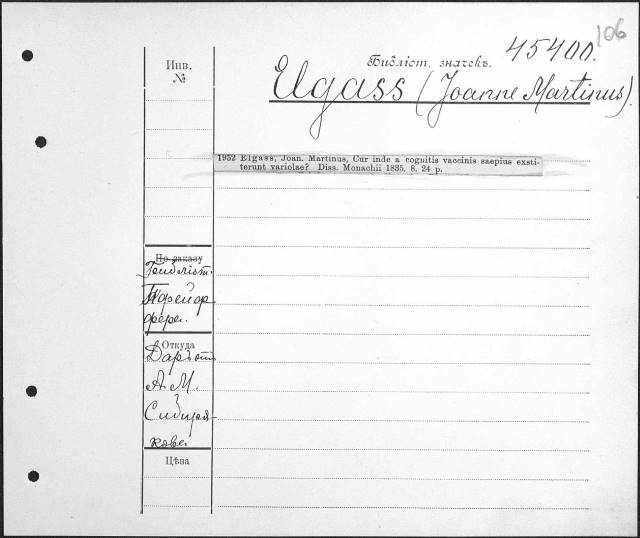 106
45400.
Инв.
№
Библіот. значекъ.
Elgass (Joanne Martinus).
1952 Elgass, Joan. Martinus, Cur inde a cognitis vaccinis saepius exsti-
terunt variolae? Diss. Monachii 1835. 8. 24 p.
По заказу
Откуда
Даръ отъ
А. М.
Сибиря-
кова.
Цѣна